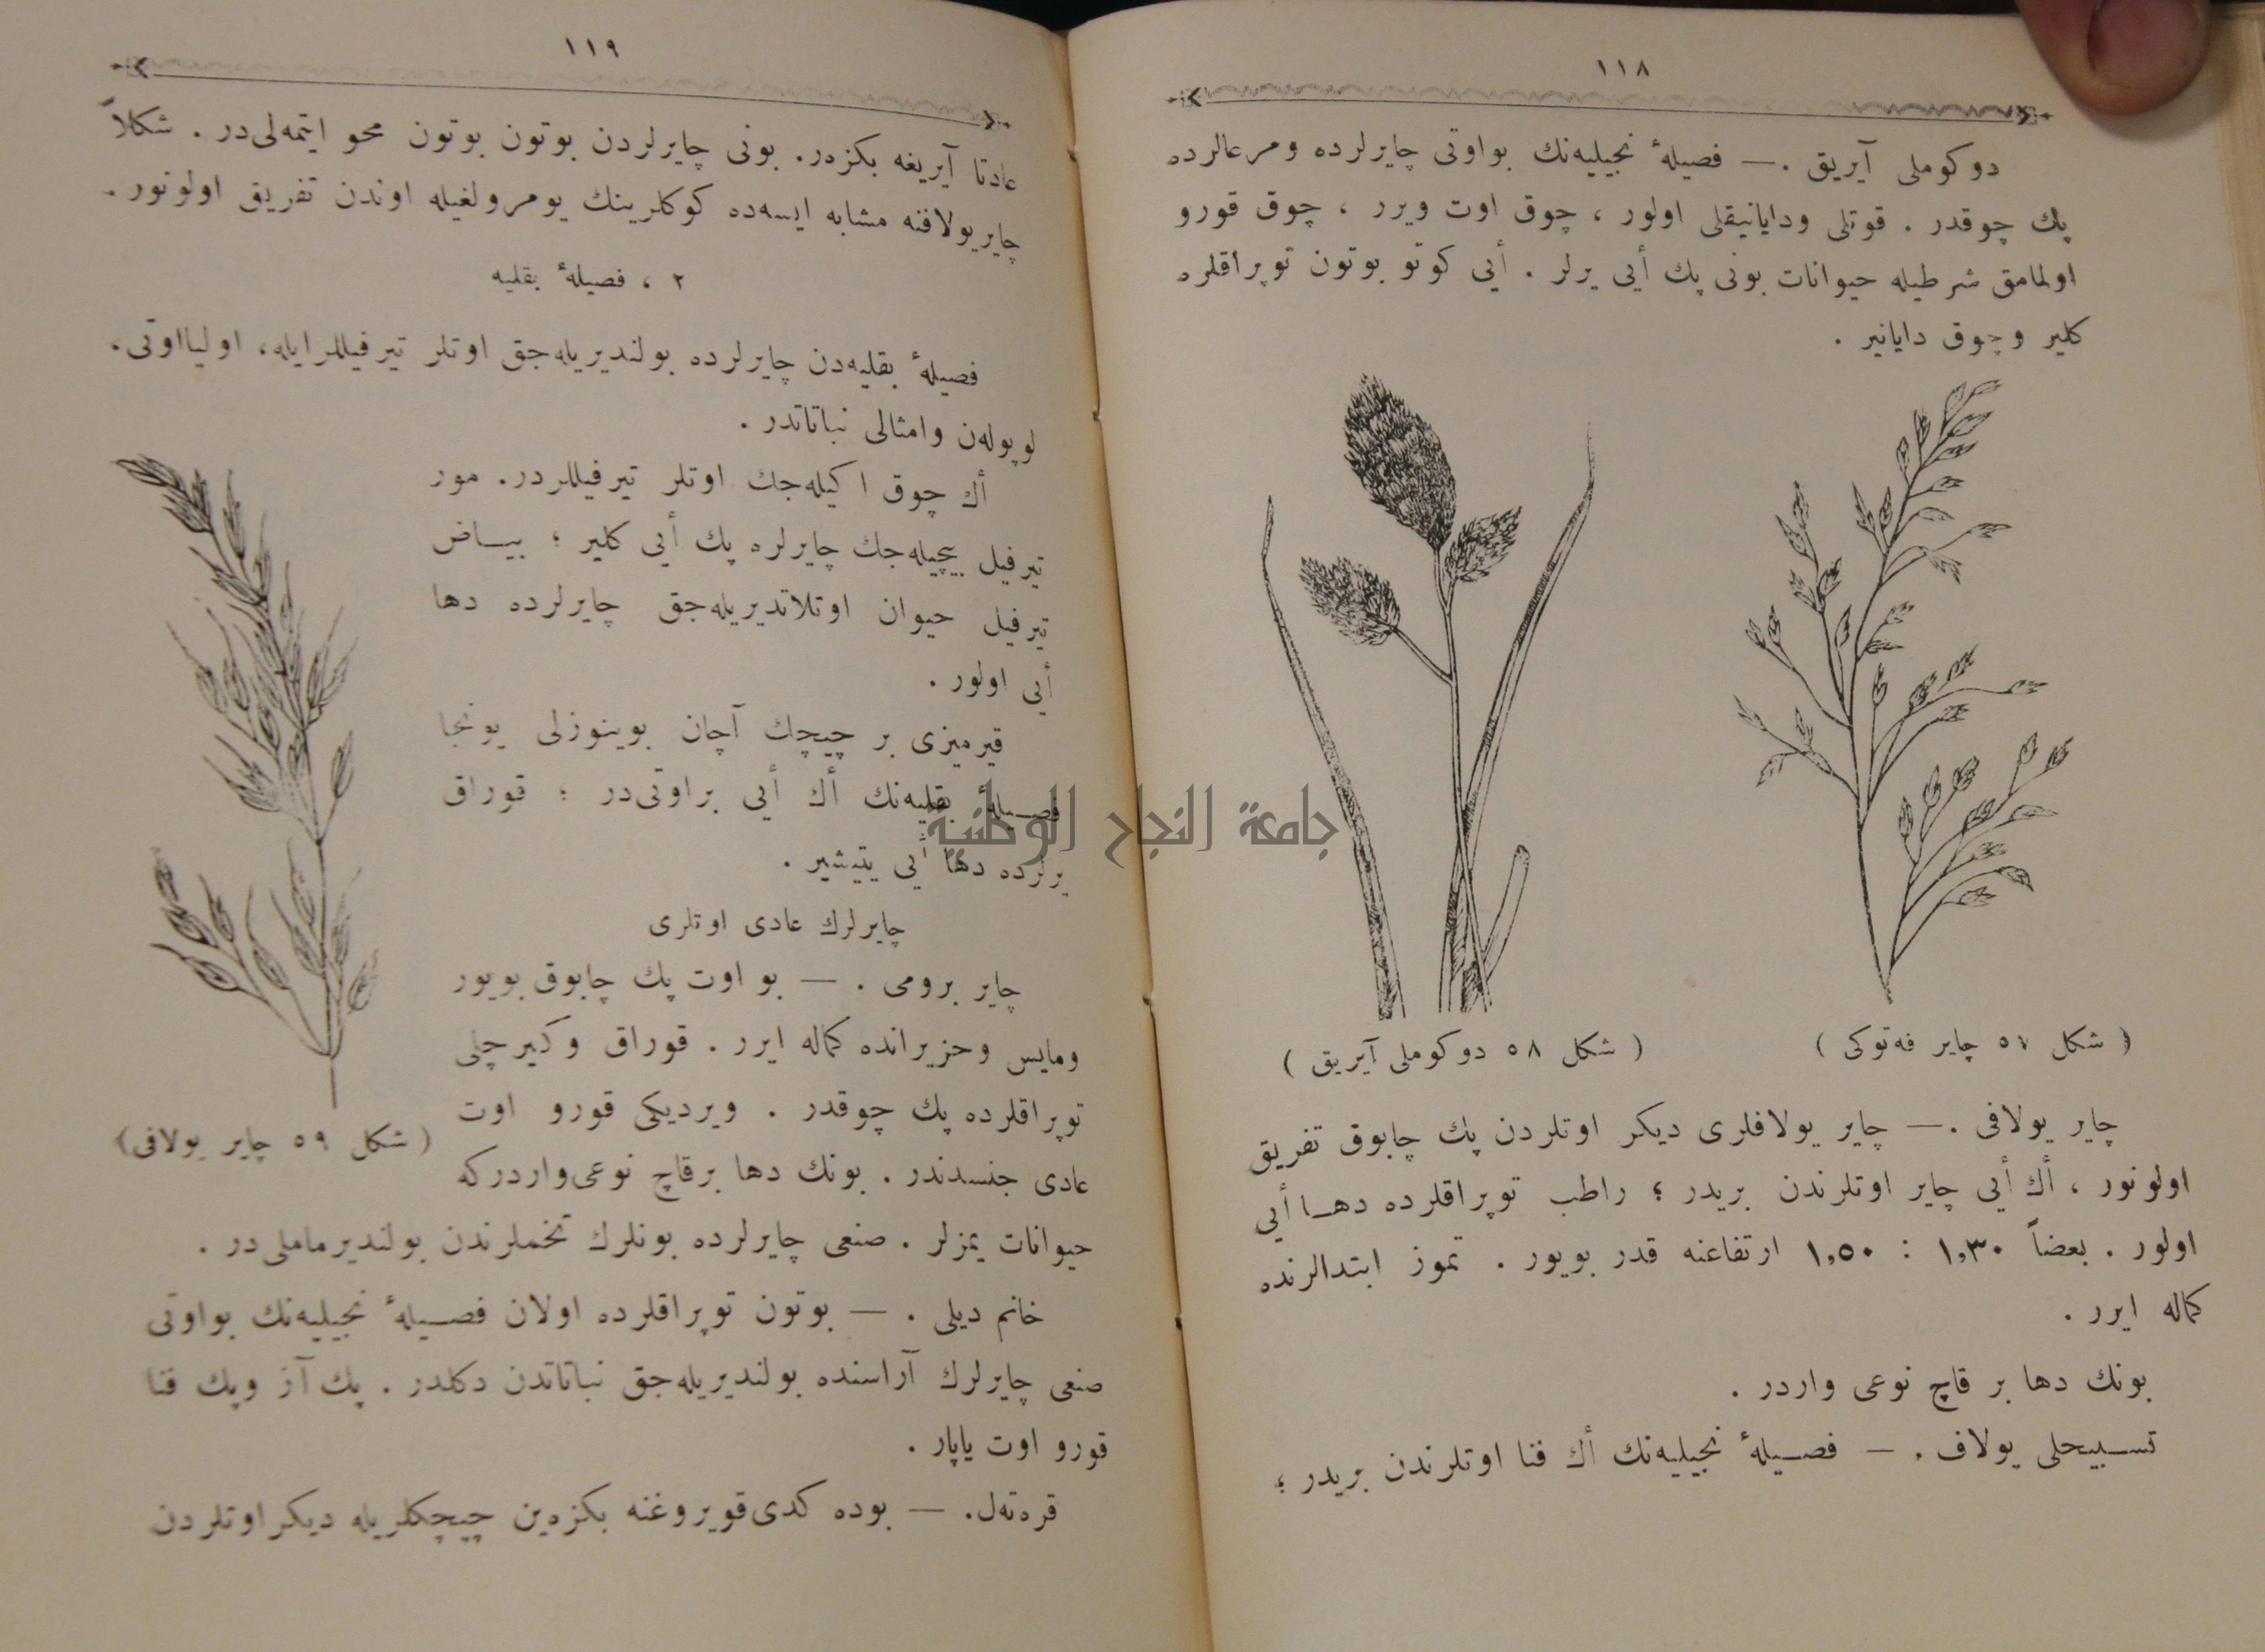 ١١٨
دوكوملی آيريق . — فصيلهٔ نجيليه‌نك بواوتی چايرلرده ومرعالرده
پك چوقدر . قوتلی ودايانيقلی اولور ، چوق اوت ويرر ، چوق قورو
اولمامق شرطيله حيوانات بونی پك أيی يرلر . أيی كوتو بوتون توپراقلره
كلير وچوق دايانير .
( شكل ٥٧ چاير فه‌توكی )
( شكل ٥٨ دوكوملی آيريق )
چاير يولافی . — چاير يولافلری ديكر اوتلردن پك چابوق تفريق
اولونور ، أك أيی چاير اوتلرندن بريدر ؛ راطب توپراقلرده دهـا أيی
اولور . بعضاً ١,٣٠ : ١,٥٠ ارتفاعنه قدر بويور . تموز ابتدالرنده
كماله ايرر .
بونك دها بر قاچ نوعی واردر .
تسـبيحلی يولاف . — فصـيلهٔ نجيليه‌نك أك فنا اوتلرندن بريدر ؛
١١٩
عادتا آيريغه بكزه‌ر. بونی چايرلردن بوتون بوتون محو ايتمه‌لی‌در . شكلاً
چايريولافنه مشابه ايسه‌ده كوكلرينك يومرولغيله اوندن تفريق اولونور .
٢ ، فصيلهٔ بقليه
فصيلهٔ بقليه‌دن چايرلرده بولنديريله‌جق اوتلر تيرفيللرايله، اوليااوتی،
لوپوله‌ن وامثالی نباتاتدر .
أك چوق اكيله‌جك اوتلر تيرفيللردر. مور
تيرفيل بيچيله‌جك چايرلره پك أيی كلير ؛ بيـاض
تيرفيل حيوان اوتلاتديريله‌جق چايرلرده دها
أيی اولور .
قيرميزی بر چيچك آچان بوينوزلی يونجا
فصـيلهٔ بقليه‌نك أك أيی براوتی‌در ؛ قوراق
يرلرده دها أيی يتيشير .
چايرلرك عادی اوتلری
چاير برومی . — بو اوت پك چابوق بويور
ومايس وحزيرانده كماله ايرر . قوراق وكيرچلی
توپراقلرده پك چوقدر . ويرديكی قورو اوت
عادی جنسدندر . بونك دها برقاچ نوعی‌واردركه
( شكل ٥٩ چاير يولافی)
حيوانات يمزلر . صنعی چايرلرده بونلرك تخملرندن بولنديرماملی‌در .
خانم ديلی . — بوتون توپراقلرده اولان فصـيلهٔ نجيليه‌نك بواوتی
صنعی چايرلرك آراسنده بولنديريله‌جق نباتاتدن دكلدر . پك آز وپك فنا
قورو اوت ياپار .
قره‌ته‌ل. — بوده كدی‌قويروغنه بكزه‌ين چيچكلريله ديكراوتلردن
جامعة النجاح الوطنية